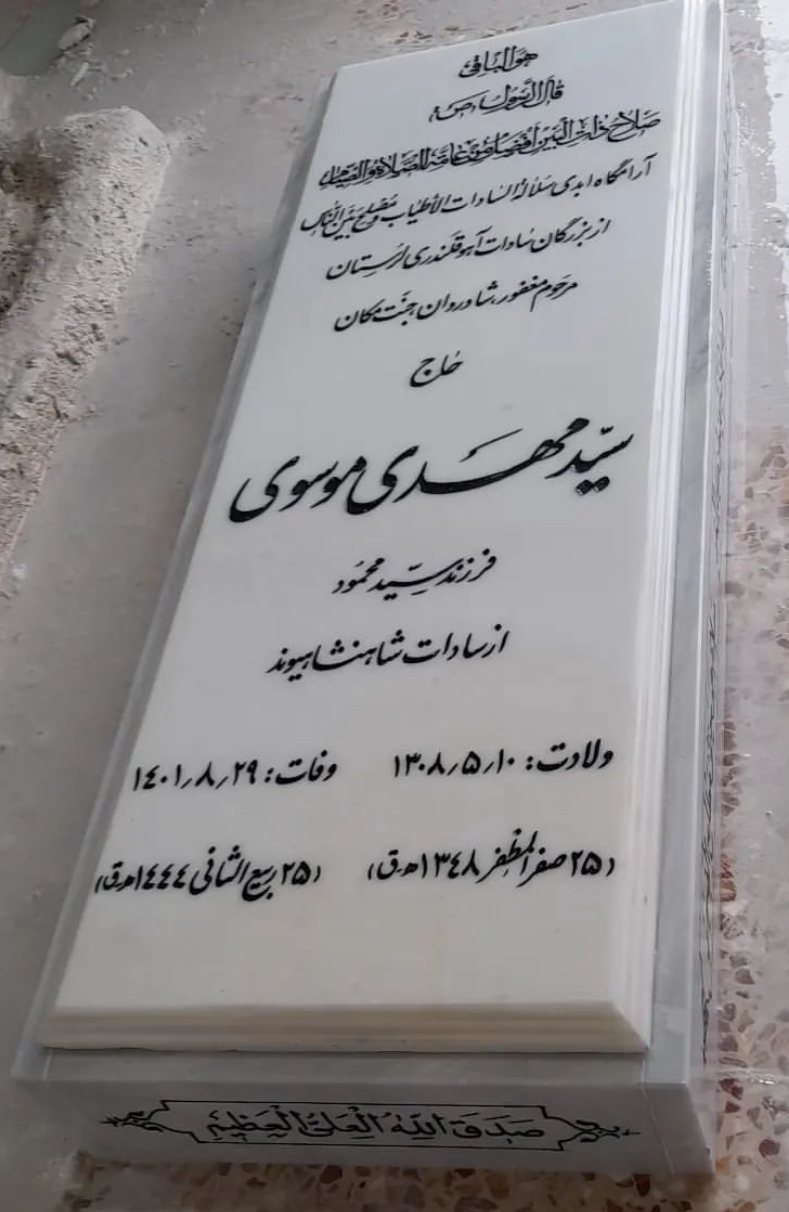 هو الباقی
قال الرسول (ص)
صلاح ذات البین افضل من عامة الصلاة و الصیام
آرامگاه ابدی سلاله السادات الأطیاب و مصلح بین الناس
از بزرگان سادات آهوقلندری لرستان
مرحوم مغفور، شادروان جنت مکان
حاج
سیّد مهدی موسوی
فرزند سیّد محمود
از سادات شاهنشاهیوند
ولادت: ۱۳۰۸٫۵٫۱۰ وفات: ۱٤۰۱٫۸٫۲۹
(۲۵ صفر المظفر ۱۳٤۸ ه‍.ق) (۲۵ ربیع الثانی ۱٤٤٤ ه‍.ق)
صَدَقَ اللهُ الْعَلِیُّ الْعَظِیمُ